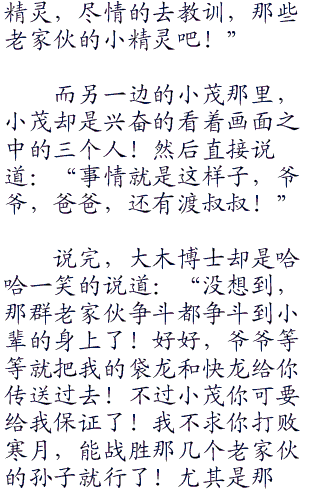 精灵，尽情的去教训，那些
老家伙的小精灵吧！”
而另一边的小茂那里，
小茂却是兴奋的看着画面之
中的三个人！然后直接说
道：“事情就是这样子，爷
爷，爸爸，还有渡叔叔！”
说完，大木博士却是哈
哈一笑的说道：“没想到，
那群老家伙争斗都争斗到小
辈的身上了！好好，爷爷等
等就把我的袋龙和快龙给你
传送过去！不过小茂你可要
给我保证了！我不求你打败
寒月，能战胜那几个老家伙
的孙子就行了！尤其是那